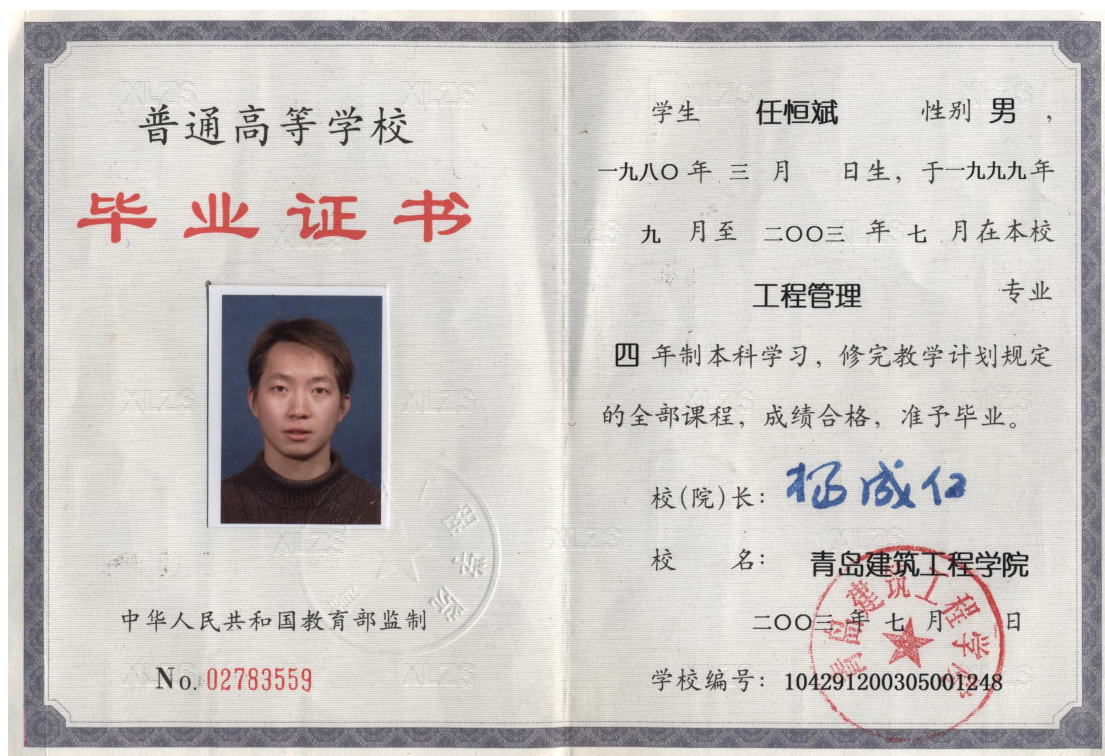 普通高等学校
毕业证书
中华人民共和国教育部监制
No. 02783559
学生 任恒斌 性别 男 ，
一九八〇年 三 月 日生，于一九九九年
九 月至 二〇〇三 年 七 月在本校
工程管理 专业
四 年制本科学习，修完教学计划规定
的全部课程，成绩合格，准予毕业。
校(院)长：杨成仁
校 名：青岛建筑工程学院
二〇〇三 年 七 月 日
学校编号：104291200305001248
青岛建筑工程学院
XLZS